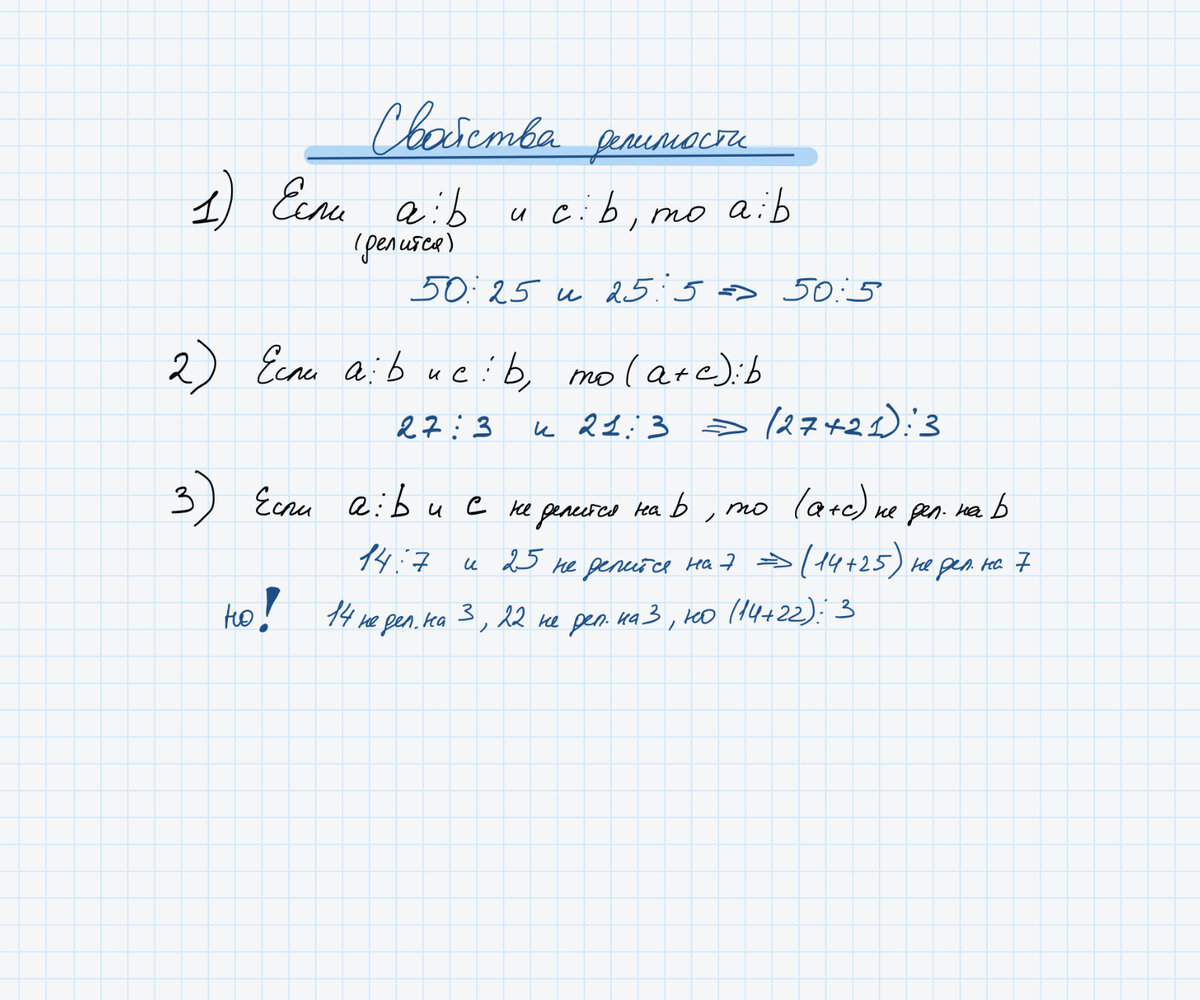 Свойства делимости
1) Если a⋮b и c⋮b, то a⋮b
(делится)
50⋮25 и 25⋮5 => 50⋮5
2) Если a⋮b и c⋮b, то (a+c)⋮b
27⋮3 и 21⋮3 => (27+21)⋮3
3) Если a⋮b и c не делится на b, то (a+c) не дел. на b
14⋮7 и 25 не делится на 7 => (14+25) не дел. на 7
но! 14 не дел. на 3, 22 не дел. на 3, но (14+22)⋮3